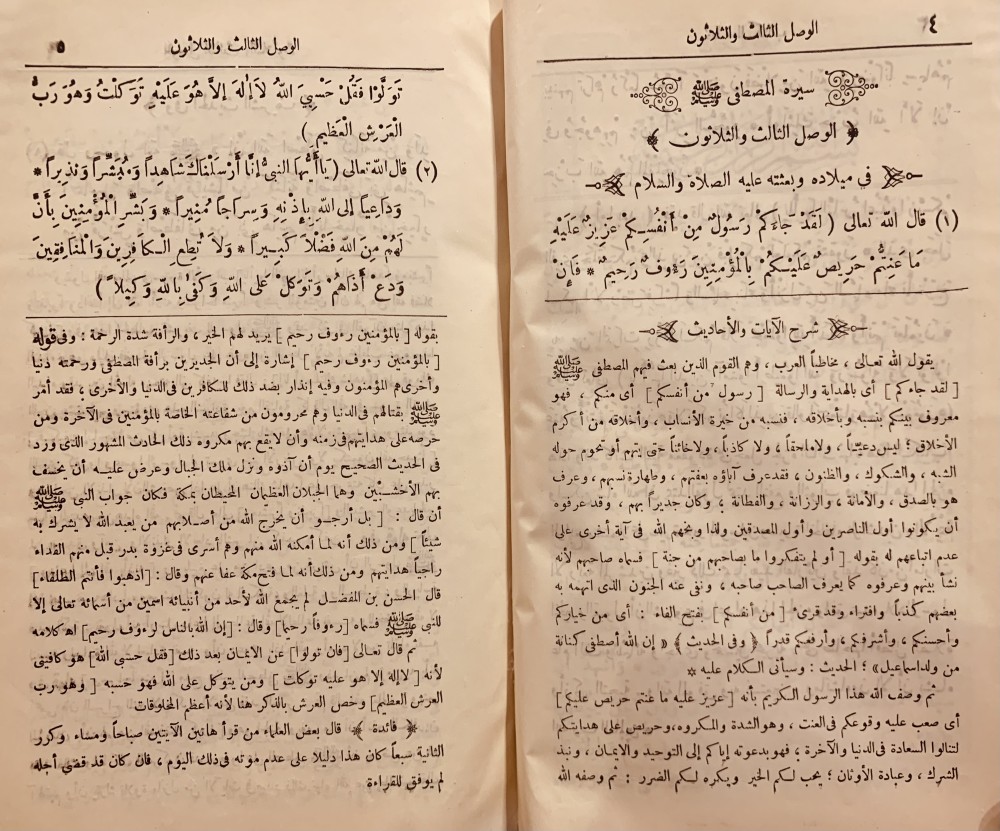 ٤
الوصل الثالث والثلاثون
سيرة المصطفى ﷺ
﴿ الوصل الثالث والثلاثون ﴾
في ميلاده وبعثته عليه الصلاة والسلام
(١) قال الله تعالى ( لَقَدْ جَاءَكُمْ رَسُولٌ مِنْ أَنْفُسِكُمْ عَزِيزٌ عَلَيْهِ
مَا عَنِتُّمْ حَرِيصٌ عَلَيْكُمْ بِالْمُؤْمِنِينَ رَءُوفٌ رَحِيمٌ * فَإِنْ
شرح الآيات والأحاديث
يقول الله تعالى ، مخاطباً العرب ، وهم القوم الذين بعث فيهم المصطفى ﷺ
[ لقد جاءكم ] أى بالهداية والرسالة [ رسول من أنفسكم ] أى منكم ، فهو
معروف بينكم بنسبه وبأخلاقه ، فنسبه من خيرة الأنساب ، وأخلاقه من أكرم
الأخلاق ؛ ليس دعيّاً ، ولا ماجقاً ، ولا كاذباً ، ولا خائناً حتى يتهم أو تحوم حوله
الشبه ، والشكوك ، والظنون ، فقد عرف آباؤه بعفتهم ، وطهارة نسبهم ، وعرف
هو بالصدق ، والأمانة ، والرزانة ، والفطانة ، وكان جديراً بهم ، وقد عرفوه
أن يكونوا أول الناصرين وأول المصدقين ولذا وبخهم الله فى آية أخرى على
عدم اتباعهم له بقوله [ أو لم يتفكروا ما بصاحبهم من جنة ] فسماه صاحبهم لأنه
نشأ بينهم وعرفوه كما يعرف الصاحب صاحبه ، ونفى عنه الجنون الذى اتهمه به
بعضهم كذباً وافتراء وقد قرئ [ من أنفسكم ] بفتح الفاء : أى من خياركم
وأحسنكم ، وأشرفكم ، وأرفعكم قدراً ﴿ وفى الحديث ﴾ « إن الله أصطفى كنانة
من ولد اسماعيل» ؛ الحديث : وسيأتى الكلام عليه *
ثم وصف الله هذا الرسول الكريم بأنه [ عزيز عليه ما عنتم حريص عليكم ]
أى صعب عليه وقوعكم فى العنت ، وهو الشدة والمكروه، وحريص على هدايتكم
لتنالوا السعادة فى الدنيا والآخرة ، فهو بدعوته إياكم إلى التوحيد والايمان ، ونبذ
الشرك ، وعبادة الأوثان ؛ يحب لكم الخير ويكره لكم الضرر : ثم وصفه الله
الوصل الثالث والثلاثون
٥
تَوَلَّوْا فَقُلْ حَسْبِيَ اللهُ لاَ إِلٰهَ إِلاَّ هُوَ عَلَيْهِ تَوَكَّلْتُ وَهُوَ رَبُّ
الْعَرْشِ الْعَظِيمِ )
(٢) قال الله تعالى ( يَا أَيُّهَا النبيُّ إِنَّا أَرْسَلْنَاكَ شَاهِداً وَمُبَشِّراً وَنَذِيراً *
وَدَاعِياً إِلى اللهِ بِإِذْنِهِ وَسِرَاجاً مُنِيراً * وَبَشِّرِ الْمُؤْمِنِينَ بِأَنَّ
لَهُمْ مِنَ اللهِ فَضْلاً كَبِيراً * وَلاَ تُطِعِ الْكَافِرِينَ وَالْمُنَافِقِينَ
وَدَعْ أَذَاهُمْ وَتَوَكَّلْ عَلَى اللهِ وَكَفَى بِاللهِ وَكِيلاً )
بقوله [ بالمؤمنين رءوف رحيم ] يريد لهم الخير ، والرأفة شدة الرحمة : وفى قوله
[ بالمؤمنين رءوف رحيم ] إشارة إلى أن الجديرين برأفة المصطفى ورحمته دنيا
وأخرى هم المؤمنون وفيه إنذار بضد ذلك للكافرين فى الدنيا والأخرى ؛ فقد أمر
ﷺ بقتالهم فى الدنيا وهم محرومون من شفاعته الخاصة للمؤمنين فى الآخرة ومن
حرصه على هدايتهم فى زمنه وأن لا يقع بهم مكروه ذلك الحادث المشهور الذى ورد
فى الحديث الصحيح يوم أن آذوه ونزل ملك الجبال وعرض عليه أن يخسف
بهم الأخشبين وهما الجبلان العظيمان المحيطان بمكة فكان جواب النبى ﷺ
أن قال : [ بل أرجو أن يخرج الله من أصلابهم من يعبد الله لا يشرك به
شيئاً ] ومن ذلك أنه لما أمكنه الله منهم وهم أسرى فى غزوة بدر قبل منهم الفداء
راجياً هدايتهم ومن ذلك أنه لما فتح مكة عفا عنهم وقال : [اذهبوا فأنتم الطلقاء]
قال الحسن بن المفضل لم يجمع الله لأحد من أنبيائه اسمين من أسمائه تعالى إلا
للنبى ﷺ فسماه [رءوفاً رحيما] وقال : [إن الله بالناس لرءوف رحيم] اهـ كلامه
ثم قال تعالى [فان تولوا] عن الايمان بعد ذلك [فقل حسبى الله] هو كافينى
لأنه [ لا إله إلا هو عليه توكلت ] ومن يتوكل على الله فهو حسبه [ وهو رب
العرش العظيم] وخص العرش بالذكر هنا لأنه أعظم المخلوقات
﴿ فائدة ﴾ قال بعض العلماء من قرأ هاتين الآيتين صباحاً ومساء وكرر
الثانية سبعاً كان هذا دليلا على عدم موته فى ذلك اليوم ، فان كان قد قضى أجله
لم يوفق للقراءة